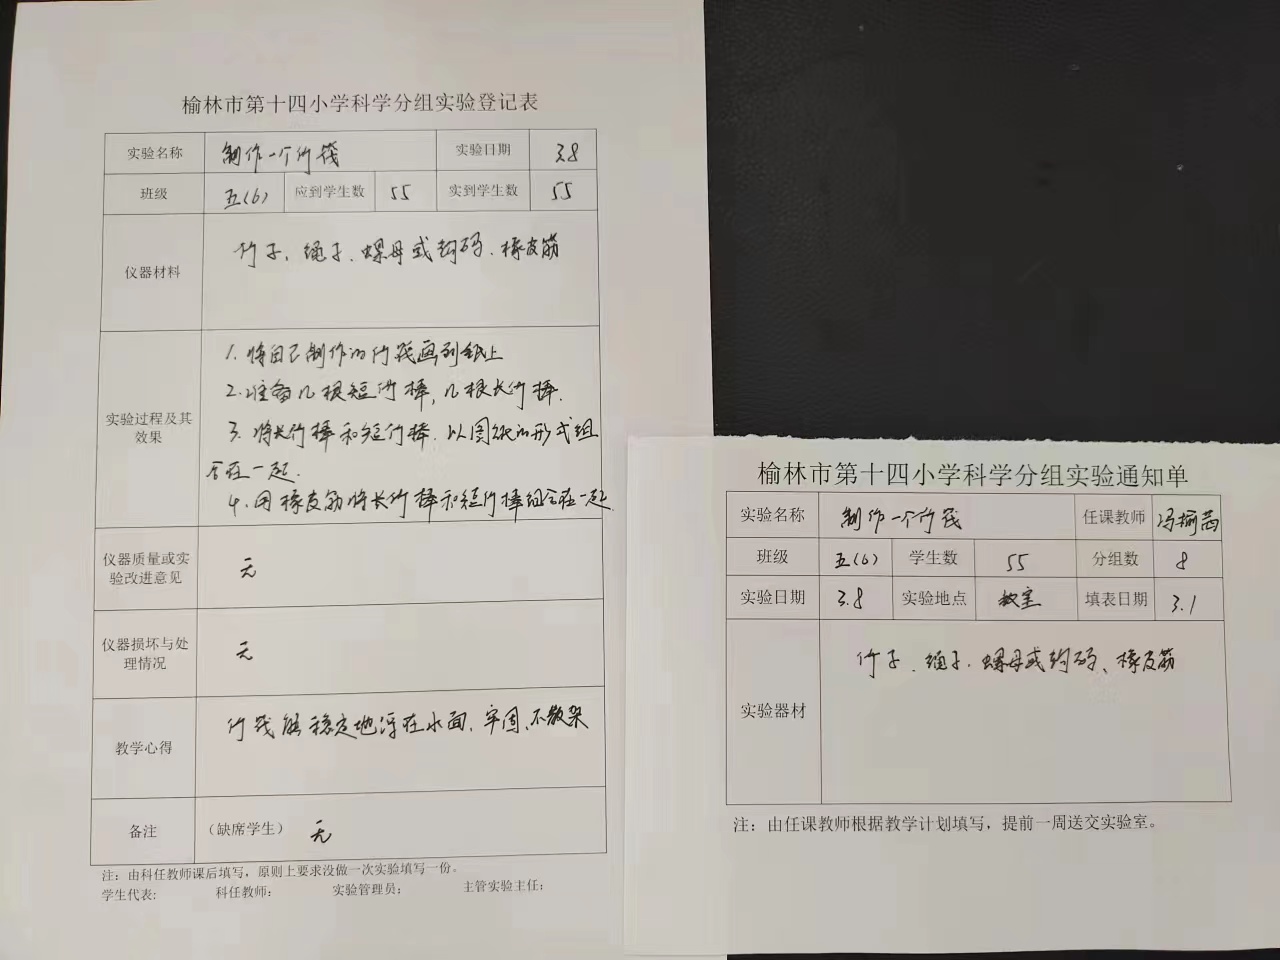 榆林市第十四小学科学分组实验登记表
实验名称 制作一个竹筏 实验日期 3.8
班级 五(6) 应到学生数 55 实到学生数 55
仪器材料 竹子、绳子、螺母或钩码、橡皮筋
实验过程及其效果
1. 将自己制作的竹筏画到纸上
2. 准备几根短竹棒,几根长竹棒.
3. 将长竹棒和短竹棒.以图纸的形式组
合在一起.
4. 用橡皮筋将长竹棒和短竹棒组合在一起
仪器质量或实验改进意见 无
仪器损坏与处理情况 无
教学心得 竹筏能稳定地浮在水面、牢固、不散架
备注 (缺席学生) 无
注:由科任教师课后填写,原则上要求没做一次实验填写一份。
学生代表: 科任教师: 实验管理员: 主管实验主任:
榆林市第十四小学科学分组实验通知单
实验名称 制作一个竹筏 任课教师 冯榆
班级 五(6) 学生数 55 分组数 8
实验日期 3.8 实验地点 教室 填表日期 3.1
实验器材 竹子、绳子、螺母或钩码、橡皮筋
注:由任课教师根据教学计划填写,提前一周送交实验室。